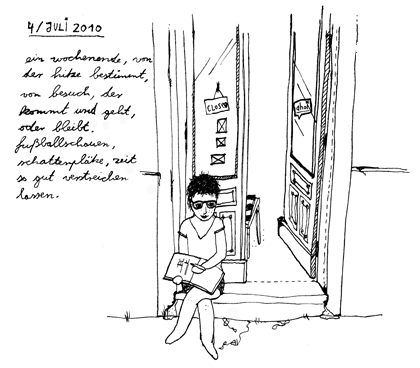 4/JULI 2010
ein wochenende, von
der hitze bestimmt,
von besuch, der
kommt und geht,
oder bleibt.
fußballschauen,
schattenplätze, zeit
so gut verstreichen
lassen.
CLOSED